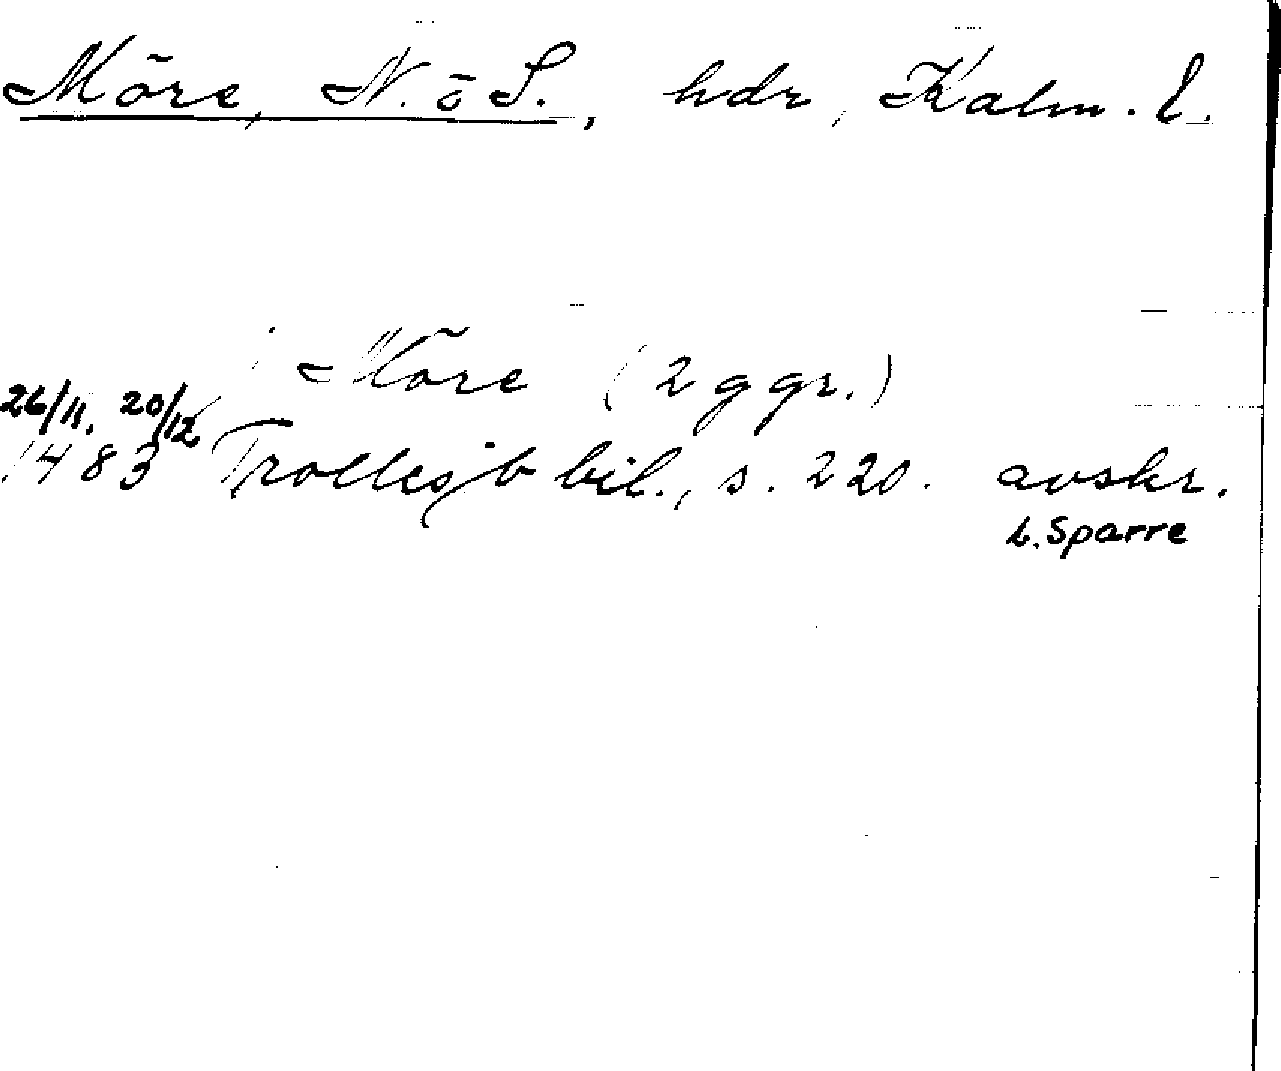 Möre, N. ö S., hdr, Kalm. l.
i Möre (2 ggr.)
26/11, 20/12
1483 Trollesjb bil., s. 220. avskr.
b. Sparre